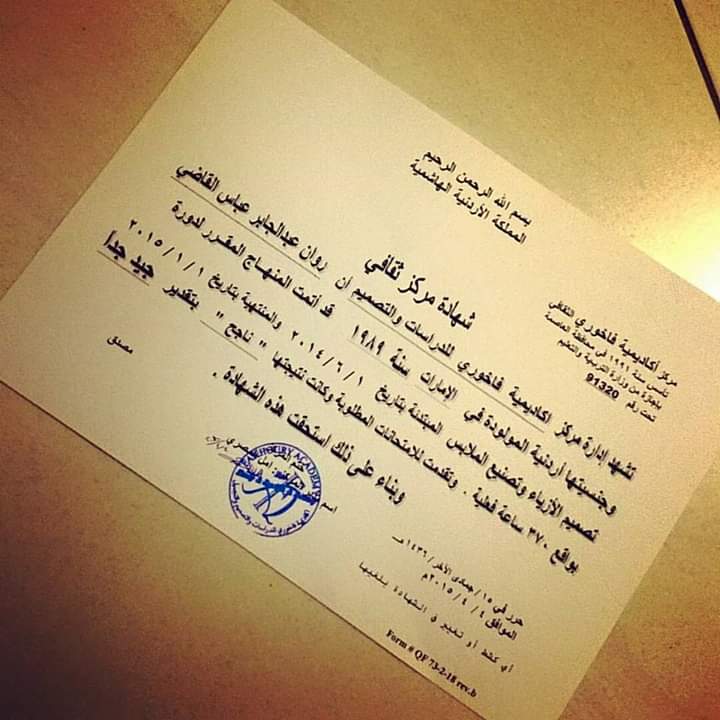 بسم الله الرحمن الرحيم
المملكة الأردنية الهاشمية
مركز أكاديمية فاخوري الثقافي
تأسس سنة ١٩٩١ في محافظة العاصمة
بإجازة من وزارة التربية والتعليم
تحت رقم 91320
شهادة مركز ثقافي
تشهد إدارة مركز اكاديمية فاخوري للدراسات والتصميم أن روان عبدالجابر عباس القاضي
وجنسيتها أردنية المولودة في الإمارات سنة ١٩٨٩ قد أتمت المنهاج المقرر لدورة
تصميم الأزياء وتصنيع الملابس المبتدئة بتاريخ ٢٠١٤/٦/١ والمنتهية بتاريخ ٢٠١٥/١/١
بواقع ٣٧٠ ساعة فعلية . وتقدمت للامتحانات المطلوبة وكانت نتيجتها " ناجح " بتقدير جيد جداً
وبناء على ذلك استحقت هذه الشهادة .
مصدق
اسم
FAKHOURY ACADEMY
حرر في ١٥ / جمادى الآخر / ١٤٣٦هـ
الموافق ٤ / ٤ / ٢٠١٥م
أي كشط أو تغيير في الشهادة يلغيها
Form # QF 73-2-18 rev.b